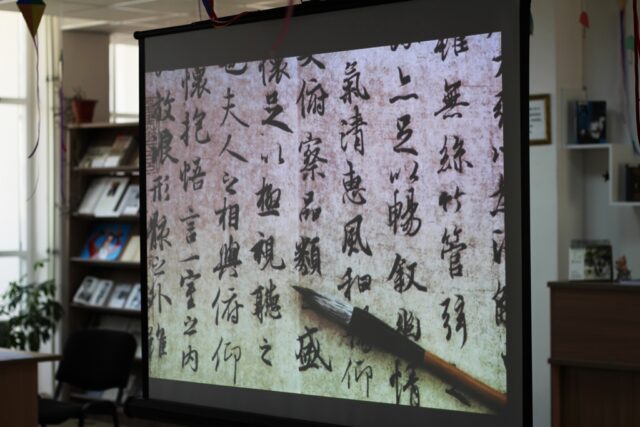 雖無絲竹管弦之
亦足以暢敘幽情
氣清惠風和仰
大俯察品類盛
懷足以極視聽之
也夫人之相與俯仰
懷抱悟言一室之內
放浪形骸之外雖